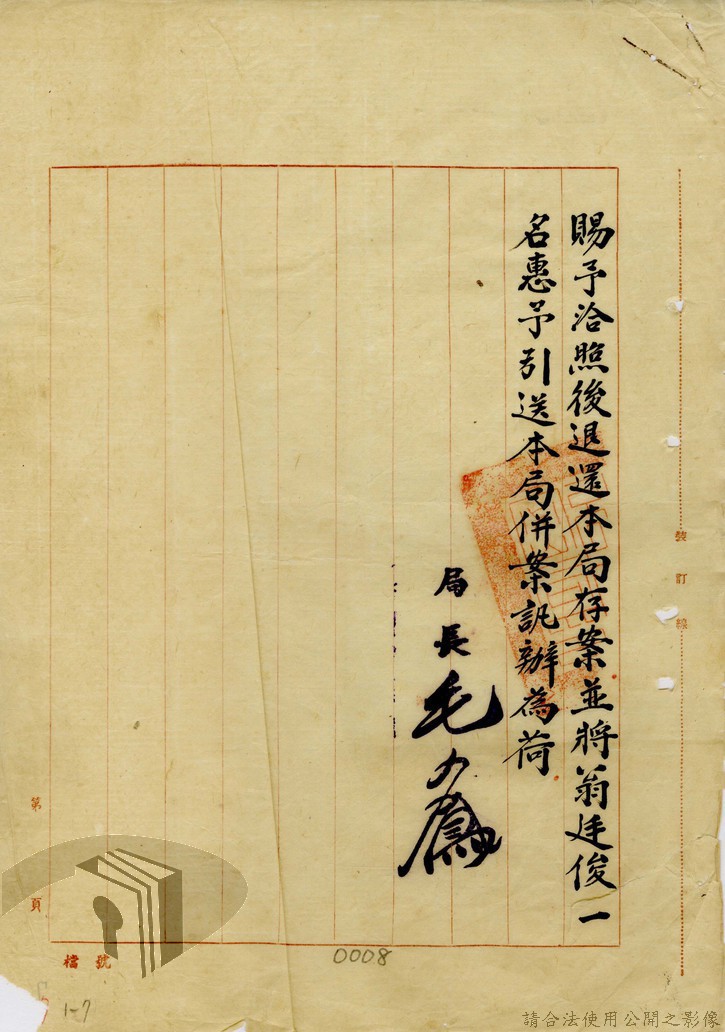 賜予洽照後退還本局存案並將翁廷俊一
名惠予引送本局併案訊辦為荷
局長毛
裝訂線
第 頁
檔號
0008
1-7
請合法使用公開之影像